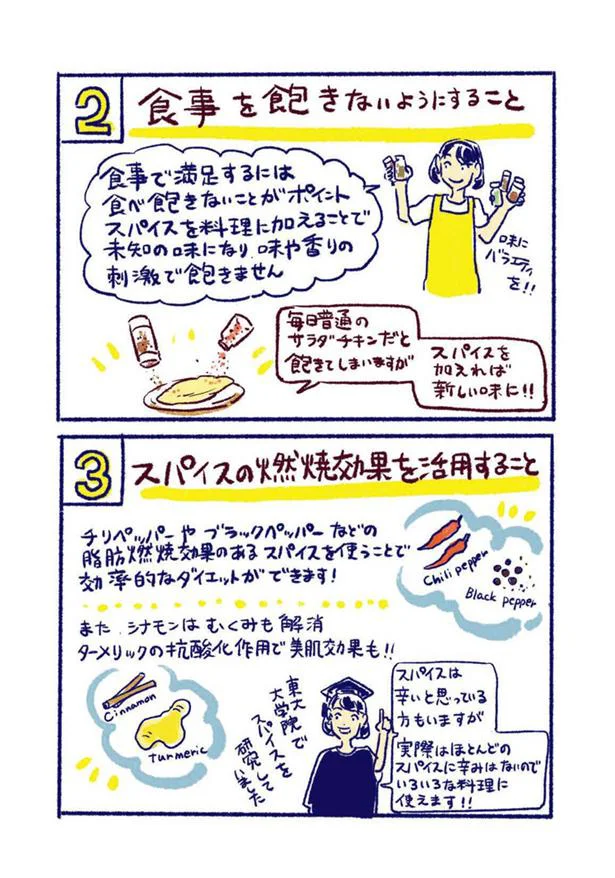 2 食事を飽きないようにすること
食事で満足するには
食べ飽きないことがポイント
スパイスを料理に加えることで
未知の味になり、味や香りの
刺激で飽きません
味に
バラエティ
を!!
毎日普通の
サラダチキンだと
飽きてしまいますが
スパイスを
加えれば
新しい味に!!
3 スパイスの燃焼効果を活用すること
チリペッパーやブラックペッパーなどの
脂肪燃焼効果のあるスパイスを使うことで
効率的なダイエットができます!
Chili pepper
Black pepper
また、シナモンはむくみも解消
ターメリックの抗酸化作用で美肌効果も!!
Cinnamon
turmeric
東大院で
大学院で
スパイスを
研究して
いました
スパイスは
辛いと思っている
方もいますが
実際はほとんどの
スパイスに辛みはないので
いろいろな料理に
使えます!!